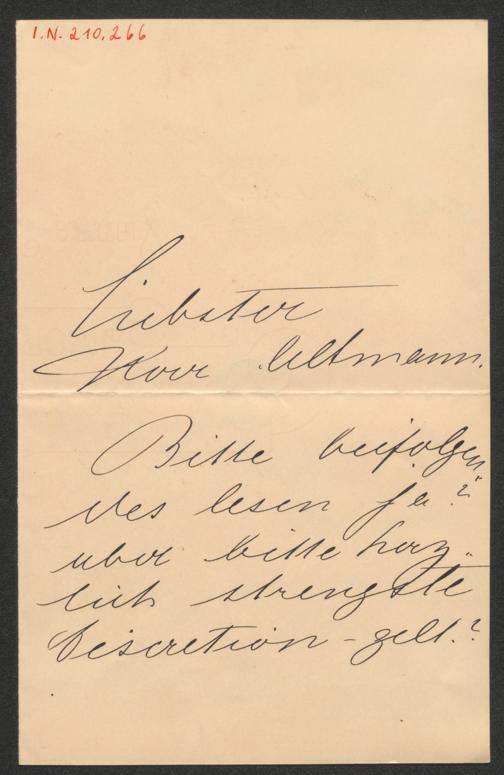 I.N. 210.266
Liebster
Herr Altmann.
Bitte beifolgen
des lesen ja?"
aber bitte herz„
lich strengste
Discretion - gelt.?